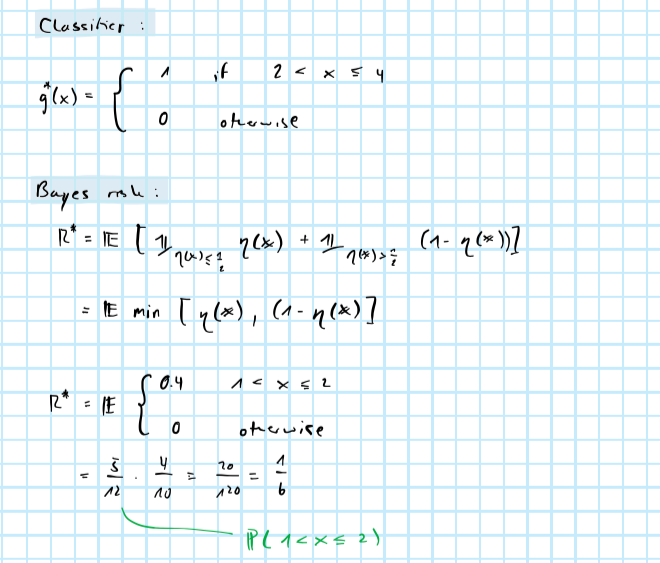 Classifier :
g*(x) = { 1 if 2 < x ≤ 4
0 otherwise
Bayes risk :
R* = 𝔼 [ 𝟙_{η(x) ≤ 1/2} η(x) + 𝟙_{η(x) > 1/2} (1 - η(x))]
= 𝔼 min [ η(x), (1 - η(x) ]
R* = 𝔼 { 0.4 1 < x ≤ 2
0 otherwise
= 5/12 · 4/10 = 20/120 = 1/6
ℙ( 1 < x ≤ 2 )